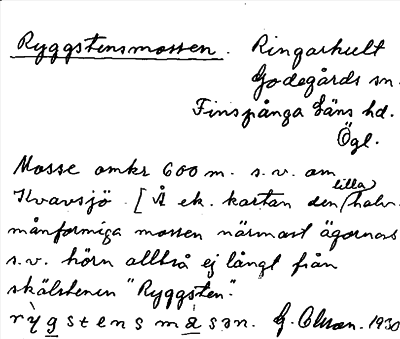 Ryggstensmossen. Ringarhult
Godegårds sn.
Finspånga läns hd.
Ögl.
Mosse omkr 600 m. s.v. om
Kvavsjö. [Å ek. kartan den lilla halv-
månformiga mossen närmast ägornas
s.v. hörn alltså ej långt från
skälstenen "Ryggsten".
rỳgstensmɔsən. G. Olson. 1930